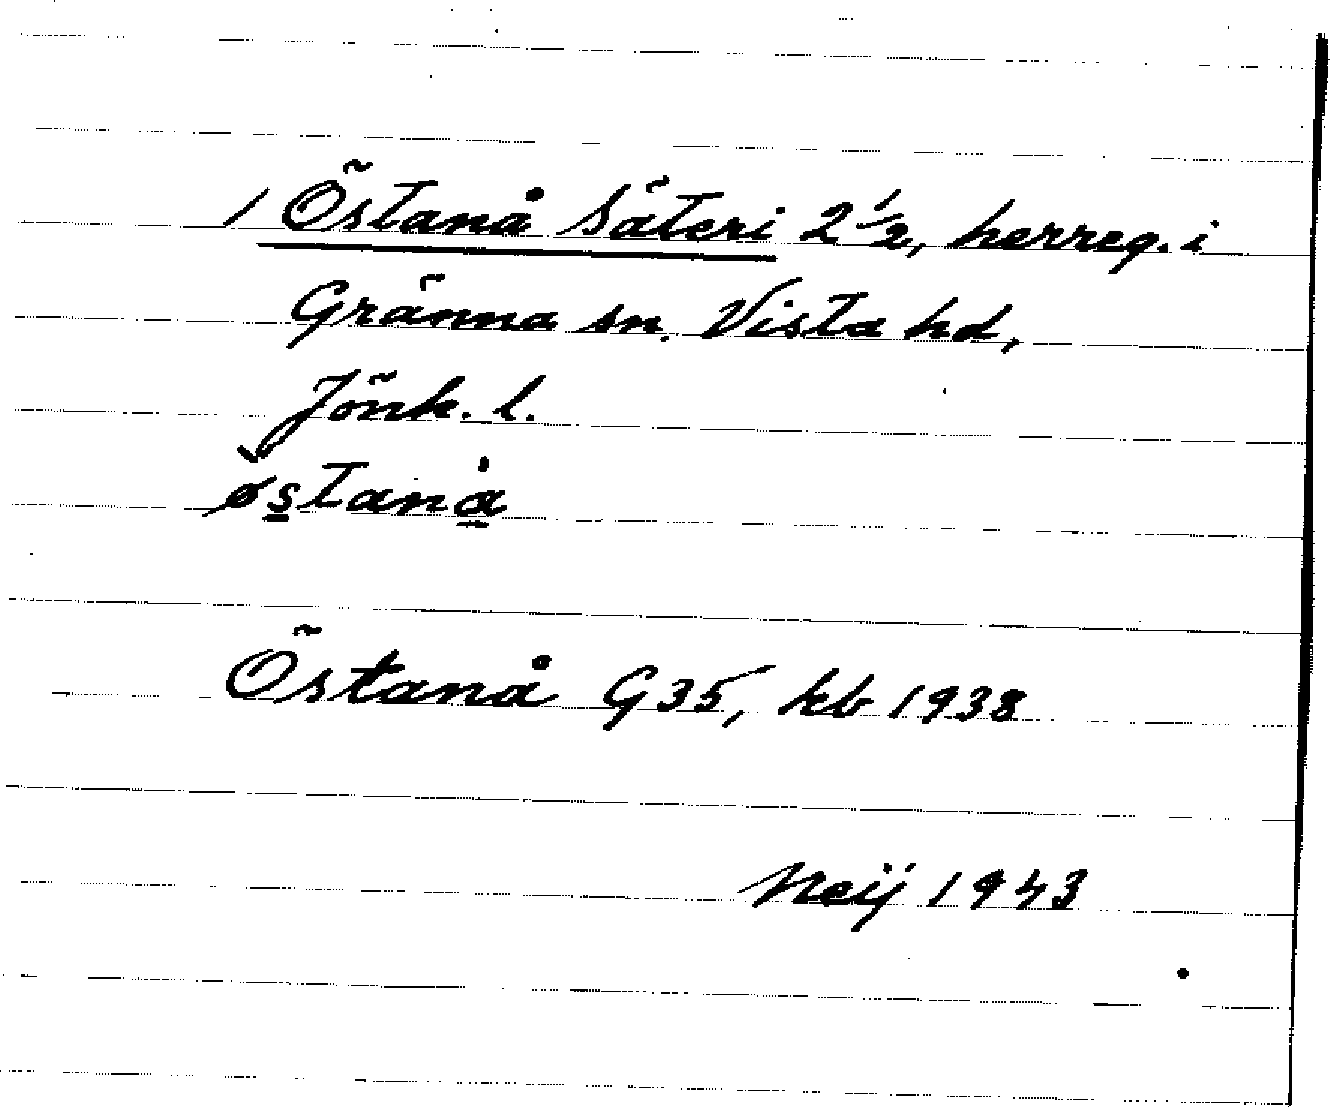 / Östanå Säteri 2 ½, herreg. i
Gränna sn. Vista hd,
Jönk. l.
østanå
Östanå G35, kb 1938
Neij 1943